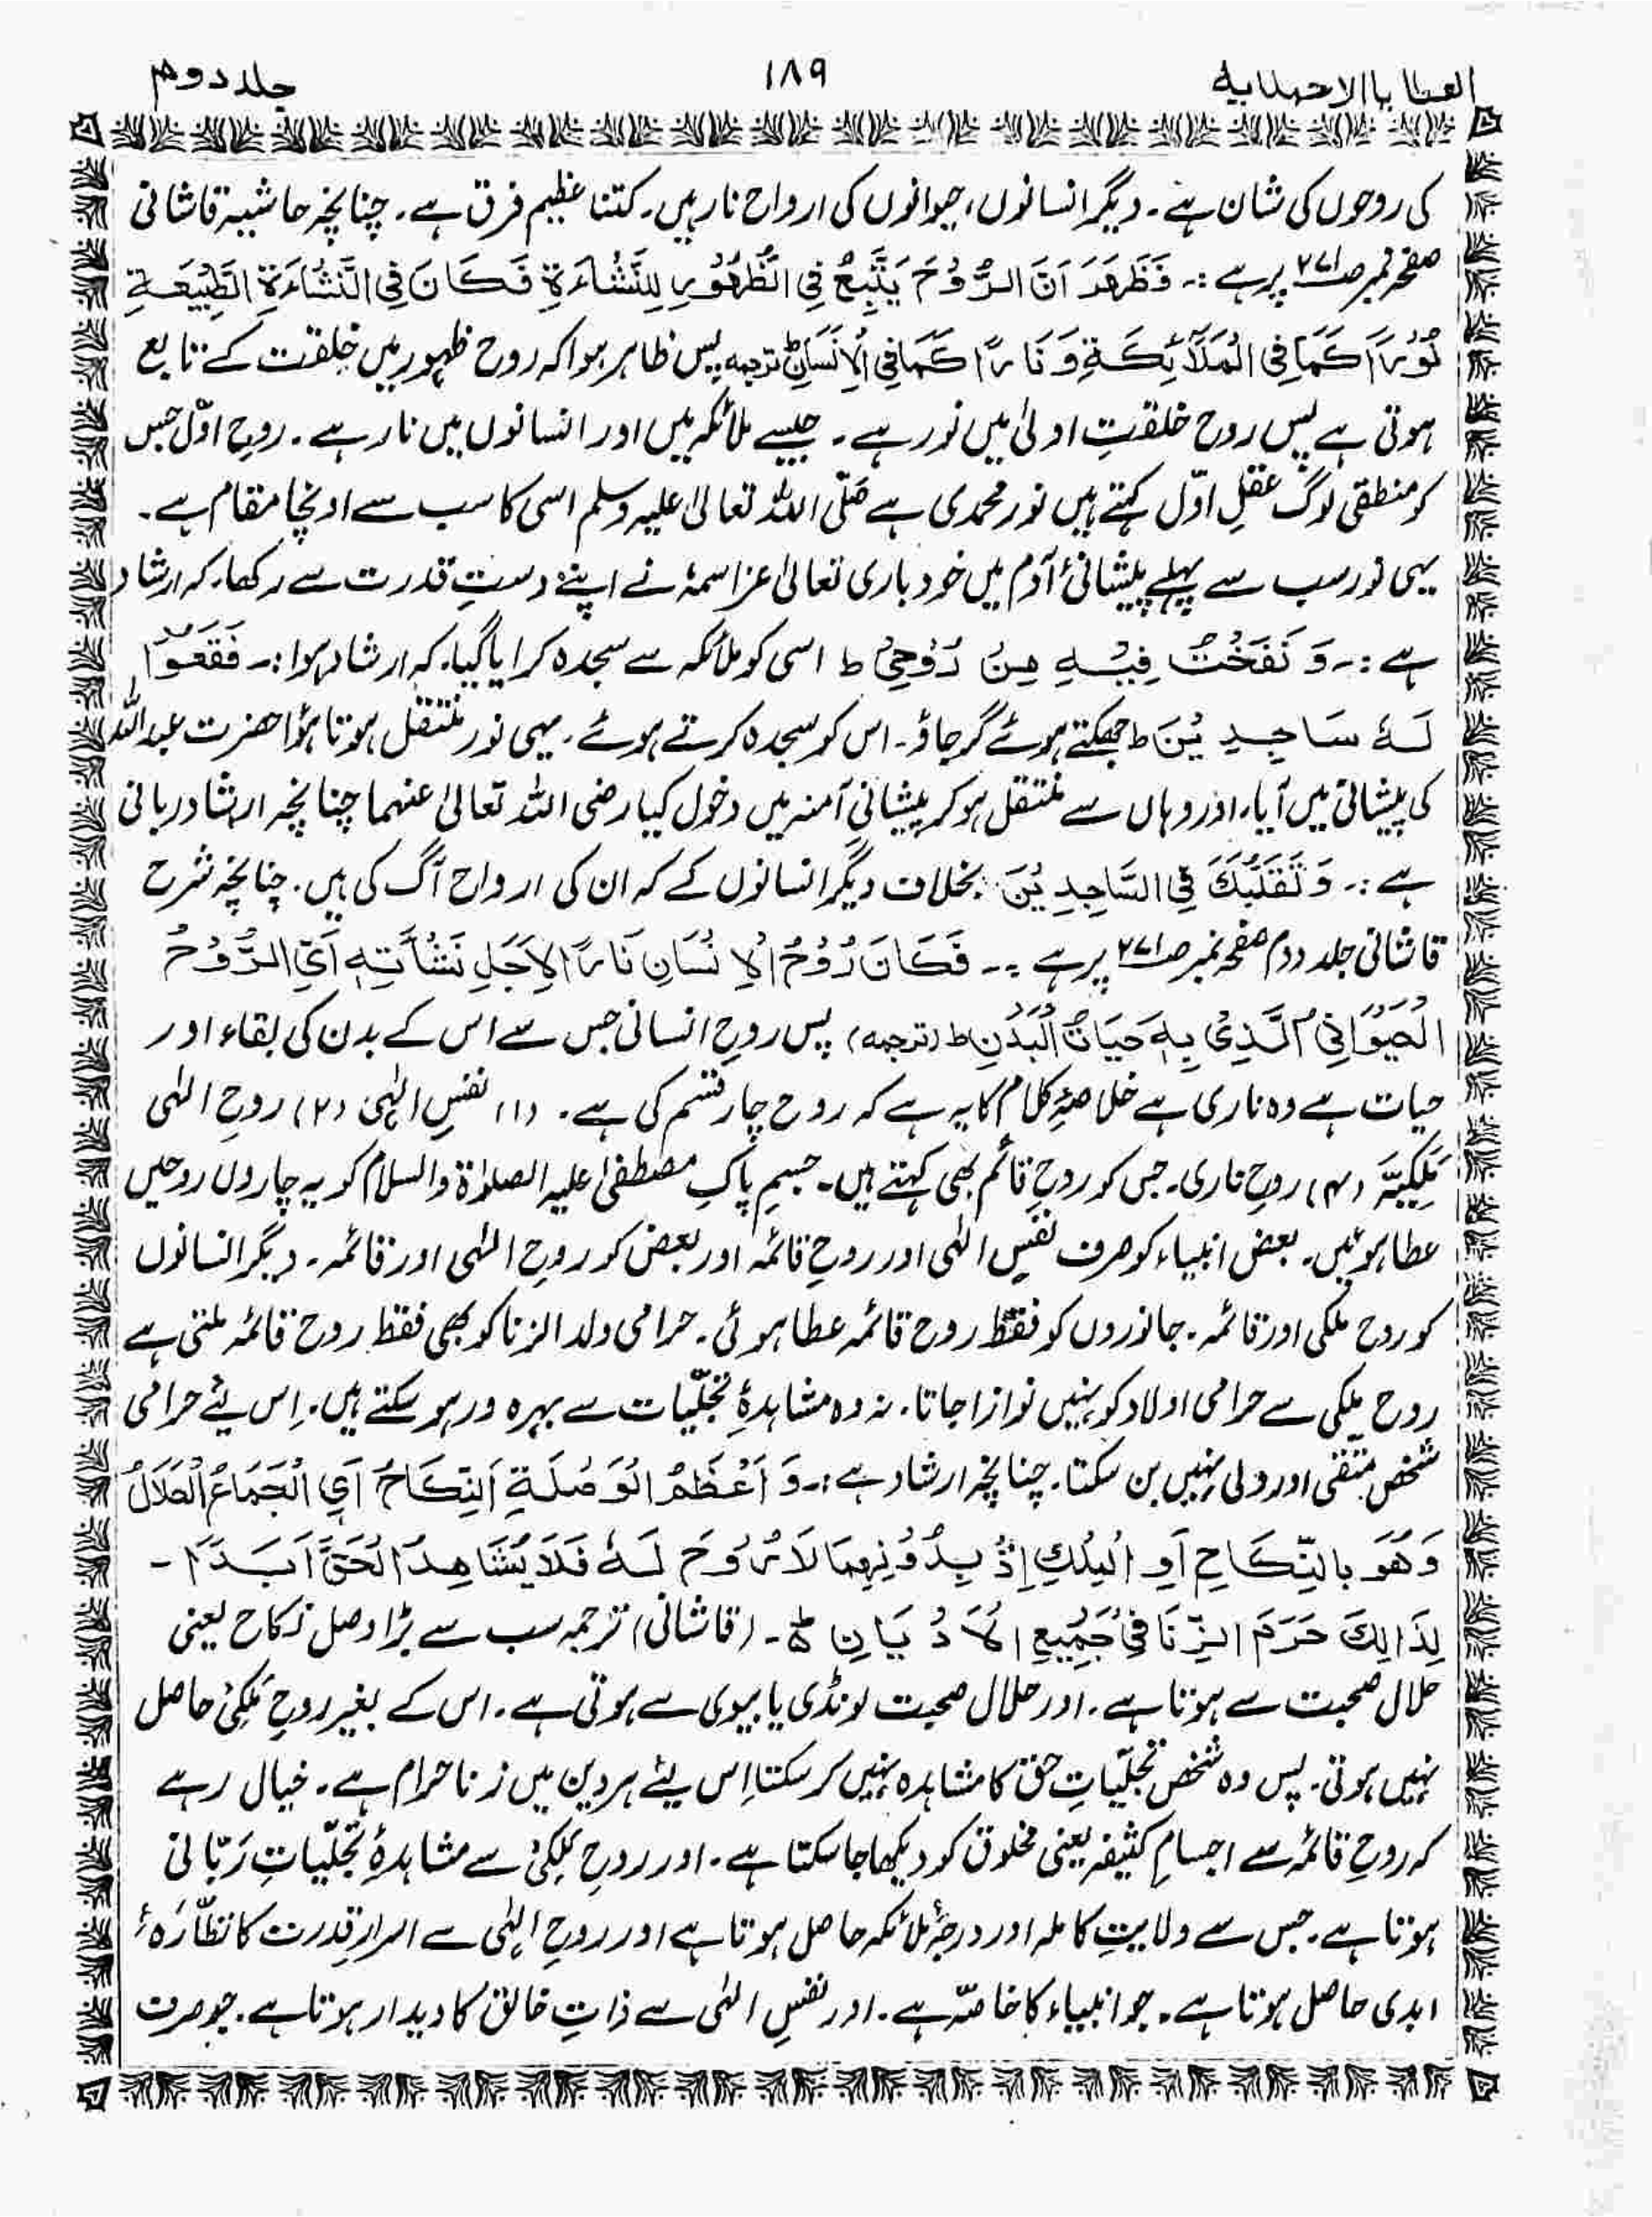 العطایا الاحمدیہ
۱۸۹
جلد دوم
کی روحوں کی شان ہے۔ دیگر انسانوں، حیوانوں کی ارواح نار ہیں۔ کتنا عظیم فرق ہے۔ چنانچہ حاشیہ قاشانی
صفحہ نمبر صـ۲۷۱ پر ہے :۔ فَظَهَرَ اَنَّ الرُّوْحَ يَتَّبِعُ فِي الظُّهُوْرِ لِلنَّشْاءَةِ فَكَانَ فِي النَّشْاءَةِ الطَّبِيْعَةِ
نُوْرًا كَمَا فِي الْمَلَآئِكَةِ وَ نَارًا كَمَا فِي الْاِنْسَانِ ط ترجمہ پس ظاہر ہوا کہ روح ظہور میں خلقت کے تابع
ہوتی ہے پس روح خلقتِ اولیٰ میں نور ہے۔ جیسے ملائکہ میں اور انسانوں میں نار ہے۔ روحِ اوّل جس
کو منطقی لوگ عقلِ اوّل کہتے ہیں نور محمدی ہے صَلّی اللہ تعالیٰ علیہ وسلم اسی کا سب سے اونچا مقام ہے۔
یہی نور سب سے پہلے پیشانیٔ آدم میں خود باری تعالیٰ عزاسمہٗ نے اپنے دستِ قدرت سے رکھا، کہ ارشاد
ہے :۔ وَ نَفَخْتُ فِيْهِ مِنْ رُوْحِيْ ط اسی کو ملائکہ سے سجدہ کرایا گیا، کہ ارشاد ہوا :۔ فَقَعُوْا
لَهٗ سَاجِدِيْنَ ط جھکتے ہوئے گر جاؤ۔ اس کو سجدہ کرتے ہوئے۔ یہی نور منتقل ہوتا ہؤا حضرت عبداللہ
کی پیشانی میں آیا، اور وہاں سے منتقل ہو کر پیشانیِ آمنہ میں دخول کیا رضی اللہ تعالیٰ عنہما چنانچہ ارشاد ربانی
ہے :۔ وَ تَقَلُّبَكَ فِي السَّاجِدِيْنَ بخلاف دیگر انسانوں کے کہ ان کی ارواح آگ کی ہیں۔ چنانچہ شرح
قاشانی جلد دوم صفحہ نمبر صـ۲۷۱ پر ہے :۔ فَكَانَ رُوْحُ الْاِنْسَانِ نَارًا لِاَجَلِ نَشْأَتِهٖ اَيِ الرُّوْحُ
الْحَيْوَانِيْ الَّذِيْ بِهٖ حَيَاتُ الْبَدَنِ ط (ترجمہ) پس روحِ انسانی جس سے اس کے بدن کی بقاء اور
حیات ہے وہ ناری ہے خلاصۂِ کلام کا یہ ہے کہ روح چار قسم کی ہے۔ (۱) نفسِ الہٰی (۲) روحِ الہٰی
مَلَکِیَّہ (۴) روحِ ناری۔ جس کو روحِ قائم بھی کہتے ہیں۔ جسمِ پاکِ مصطفیٰ علیہ الصلوٰۃ والسلام کو یہ چاروں روحیں
عطا ہوئیں۔ بعض انبیاء کو صرف نفسِ الہٰی اور روحِ قائمہ اور بعض کو روحِ الہٰی اور قائمہ۔ دیگر انسانوں
کو روحِ ملکی اور قائمہ۔ جانوروں کو فقط روح قائمہ عطا ہوئی۔ حرامی ولد الزنا کو بھی فقط روح قائمہ ملتی ہے
روح ملکی سے حرامی اولاد کو نہیں نوازا جاتا، نہ وہ مشاہدۂ تجلّیات سے بہرہ ور ہو سکتے ہیں۔ اِس لیے حرامی
شخص متقی اور ولی نہیں بن سکتا۔ چنانچہ ارشاد ہے :۔ وَ اَعْظَمُ الْوَصْلَةِ اَلنِّكَاحُ اَيِ الْجَمَاعُ الْحَلَالُ
وَهُوَ بِالنِّكَاحِ اَوِ الْمِلْكِ اِذْ بِدُوْنِهِمَا لَا رُوْحَ لَهٗ فَلَا يُشَاهِدُ الْحَقَّ اَبَدًا۔
لِذَالِكَ حَرَمَ الزِّنَا فِيْ جَمِيْعِ الْاَدْيَانِ ط۔ (قاشانی) ترجمہ سب سے بڑا وصل نکاح یعنی
حلال صحبت سے ہوتا ہے۔ اور حلال صحبت لونڈی یا بیوی سے ہوتی ہے۔ اس کے بغیر روحِ مَلَکِیْ حاصل
نہیں ہوتی۔ پس وہ شخص تجلّیاتِ حق کا مشاہدہ نہیں کر سکتا اِس لیے ہر دین میں زنا حرام ہے۔ خیال رہے
کہ روحِ قائمہ سے اجسامِ کثیفہ یعنی مخلوق کو دیکھا جا سکتا ہے۔ اور روحِ مَلَکِیْ سے مشاہدۂ تجلّیاتِ رَبّانی
ہوتا ہے۔ جس سے ولایتِ کاملہ اور درجۂ ملائکہ حاصل ہوتا ہے اور روحِ الہٰی سے اسرارِ قدرت کا نظّارَہٗ
ابدی حاصل ہوتا ہے۔ جو انبیاء کا خاصّہ ہے۔ اور نفسِ الہٰی سے ذاتِ خالق کا دیدار ہوتا ہے۔ جو صرف